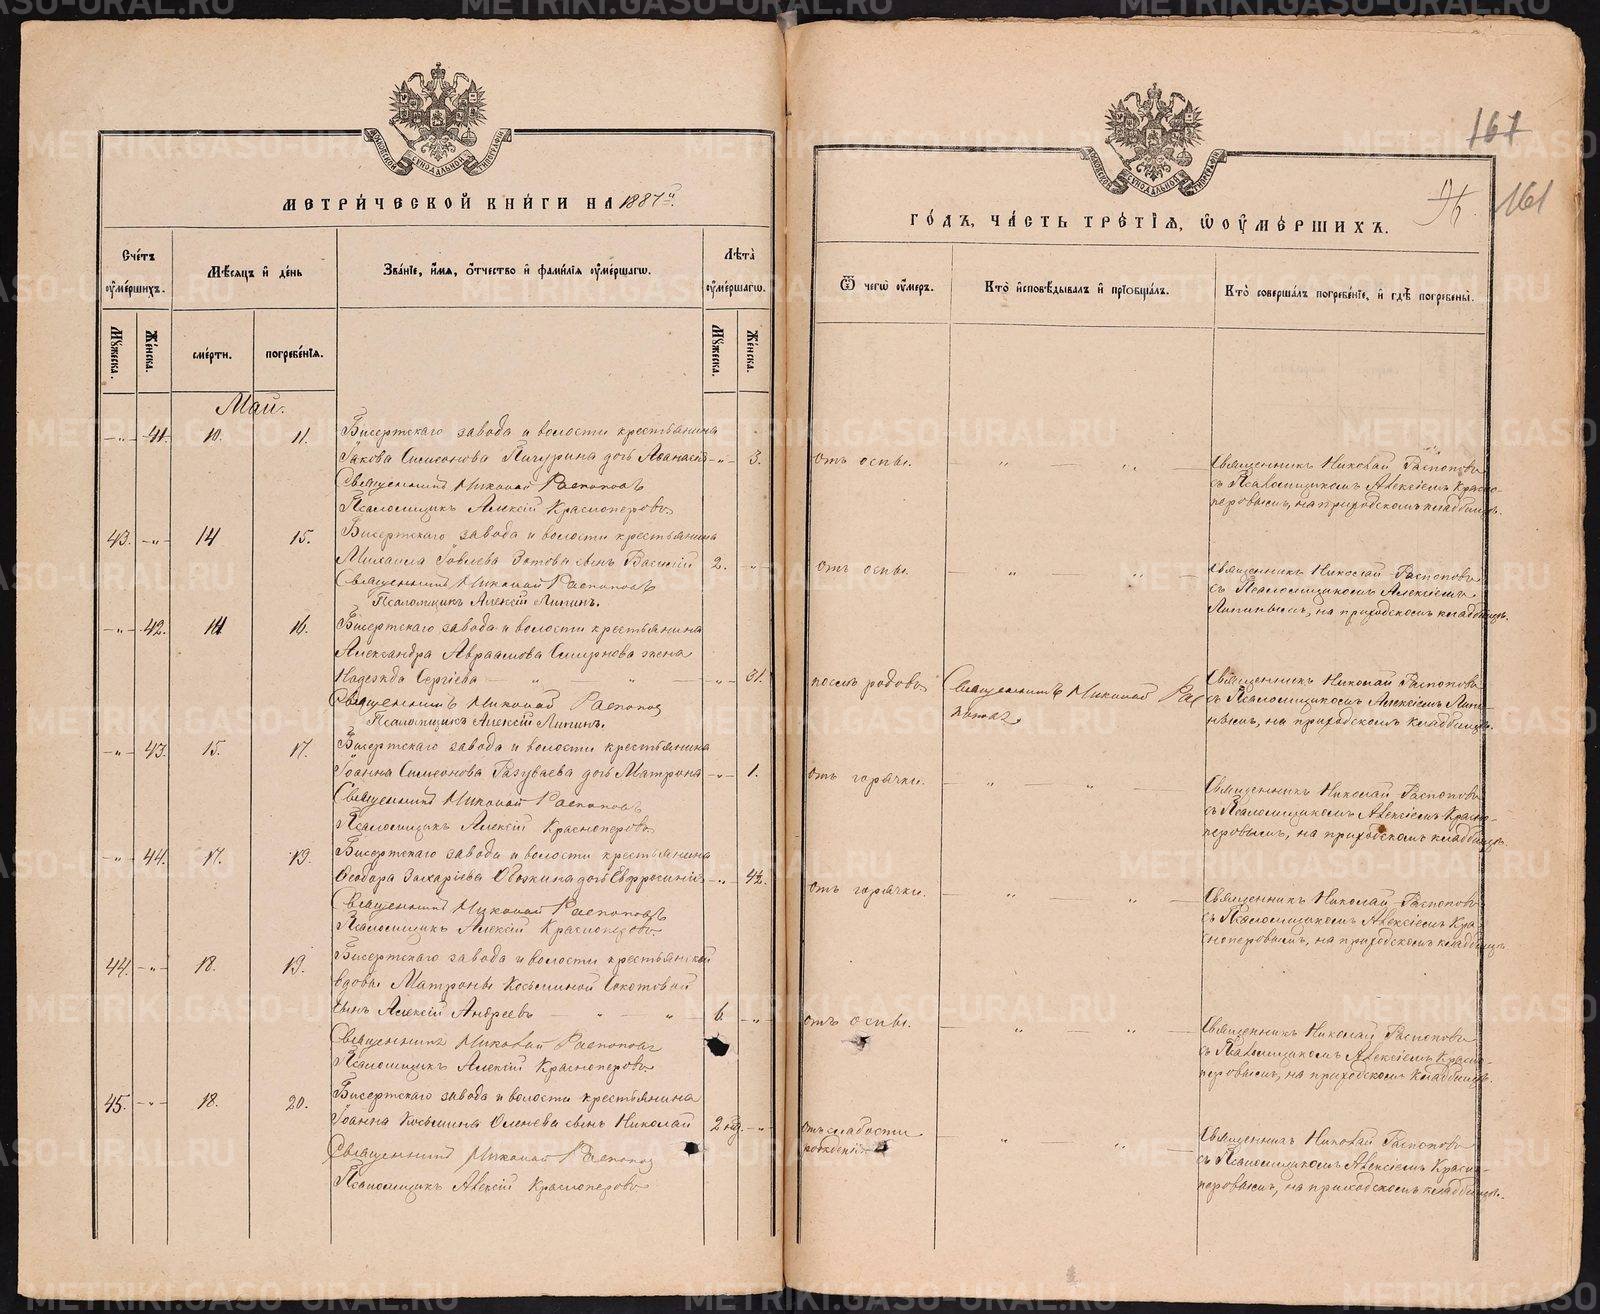 МЕТРИ́ЧЕСКОЙ КНИ́ГИ НА 1887 й.
Сче́тъ ᲂумершихъ.
Мѣсяцъ и҆ де́нь
Зва́нїе, и҆́мя, ѻ҆́тчество и҆ фами́лїя ᲂу҆ме́ршагѡ.
Лѣта̀ ᲂу҆ме́ршагѡ.
Мꙋжеска.
Же́нска.
сме́рти.
погребе́нїя.
Мꙋжеска.
Же́нска.
Май.
-„- 41. 10. 11. Бисертскаго завода и волости крестьянина
Іакова Симеонова Пичурина дочь Аѳанасія -„- 3.
Священникъ Николай Распоповъ
Псаломщикъ Алексій Красноперовъ
43. -„- 14 15. Бисертскаго завода и волости крестьянина
Михаила Іовлева Зотова сынъ Василій 2. -„-
Священникъ Николай Распоповъ
Псаломщикъ Алексій Липинъ.
-„- 42. 14 16. Бисертскаго завода и волости крестьянина
Александра Авраамова Смирнова жена
Надежда Сергіева — „ — „ — -„- 31.
Священникъ Николай Распопов
Псаломщикъ Алексій Липинъ.
-„- 43. 15. 17. Бисертскаго завода и волости крестьянина
Іоанна Симеонова Разуваева дочь Матрона -„- 1.
Священникъ Николай Распоповъ
Псаломщикъ Алексій Красноперовъ
-„- 44. 17. 19. Бисертскаго завода и волости крестьянина
Ѳеодора Захаріева дочь Евфросинія -„- 42.
Священникъ Николай Распоповъ
Псаломщикъ Алексій Красноперовъ.
44. -„- 18. 19. Бисертскаго завода и волости крестьянской
вдовы Матроны Косьминой
сынъ Алексій Андреевъ — „ — „ 6. -„-
Священникъ Николай Распоповъ
Псаломщикъ Алексій Красноперовъ
45. -„- 18. 20. Бисертскаго завода и волости крестьянина
Іоанна Косьмина Оленева сынъ Николай 2 нед. -„-
Священникъ Николай Распопов
Псаломщикъ Алексій Красноперовъ
167
96. 161
ГО́ДЪ, ЧА́СТЬ ТРЕ́ТЇЯ, Ѡ҆ ОУ҆МЕ́РШИХЪ.
Ѿ чегѡ̀ ᲂу҆́меръ.
Кто̀ и҆сповѣ́дывалъ и҆ прїѡбща́лъ.
Кто̀ соверша́лъ погребе́нїе, и҆ гдѣ̀ погребены̀.
отъ оспы. — „ — „ — Священникъ Николай Распоповъ
съ Псаломщикомъ Алексіемъ Красно-
перовымъ, на приходскомъ кладбищѣ.
отъ оспы. — „ — „ — Священникъ Николай Распоповъ
съ Псаломщикомъ Алексіемъ
Липинымъ, на приходскомъ кладбищѣ.
послѣ родовъ Священникъ Николай Рас Священникъ Николай Распоповъ
поповъ съ Псаломщикомъ Алексіемъ Липи-
нымъ, на приходскомъ кладбищѣ.
отъ горячки. — „ — „ — Священникъ Николай Распоповъ
съ Псаломщикомъ Алексіемъ Красно-
перовымъ, на приходскомъ кладбищѣ.
отъ горячки. — „ — „ — Священникъ Николай Распоповъ
съ Псаломщикомъ Алексіемъ Кра-
сноперовымъ, на приходскомъ кладбищѣ
отъ оспы. — „ — „ — Священникъ Николай Распоповъ
съ Псаломщикомъ Алексіемъ Красно-
перовымъ, на приходскомъ кладбищѣ.
отъ слабости — „ — „ — Священникъ Николай Распоповъ
рожденія съ Псаломщикомъ Алексіемъ Красно-
перовымъ, на приходскомъ кладбищѣ.
METRIKI.GASO-URAL.RU